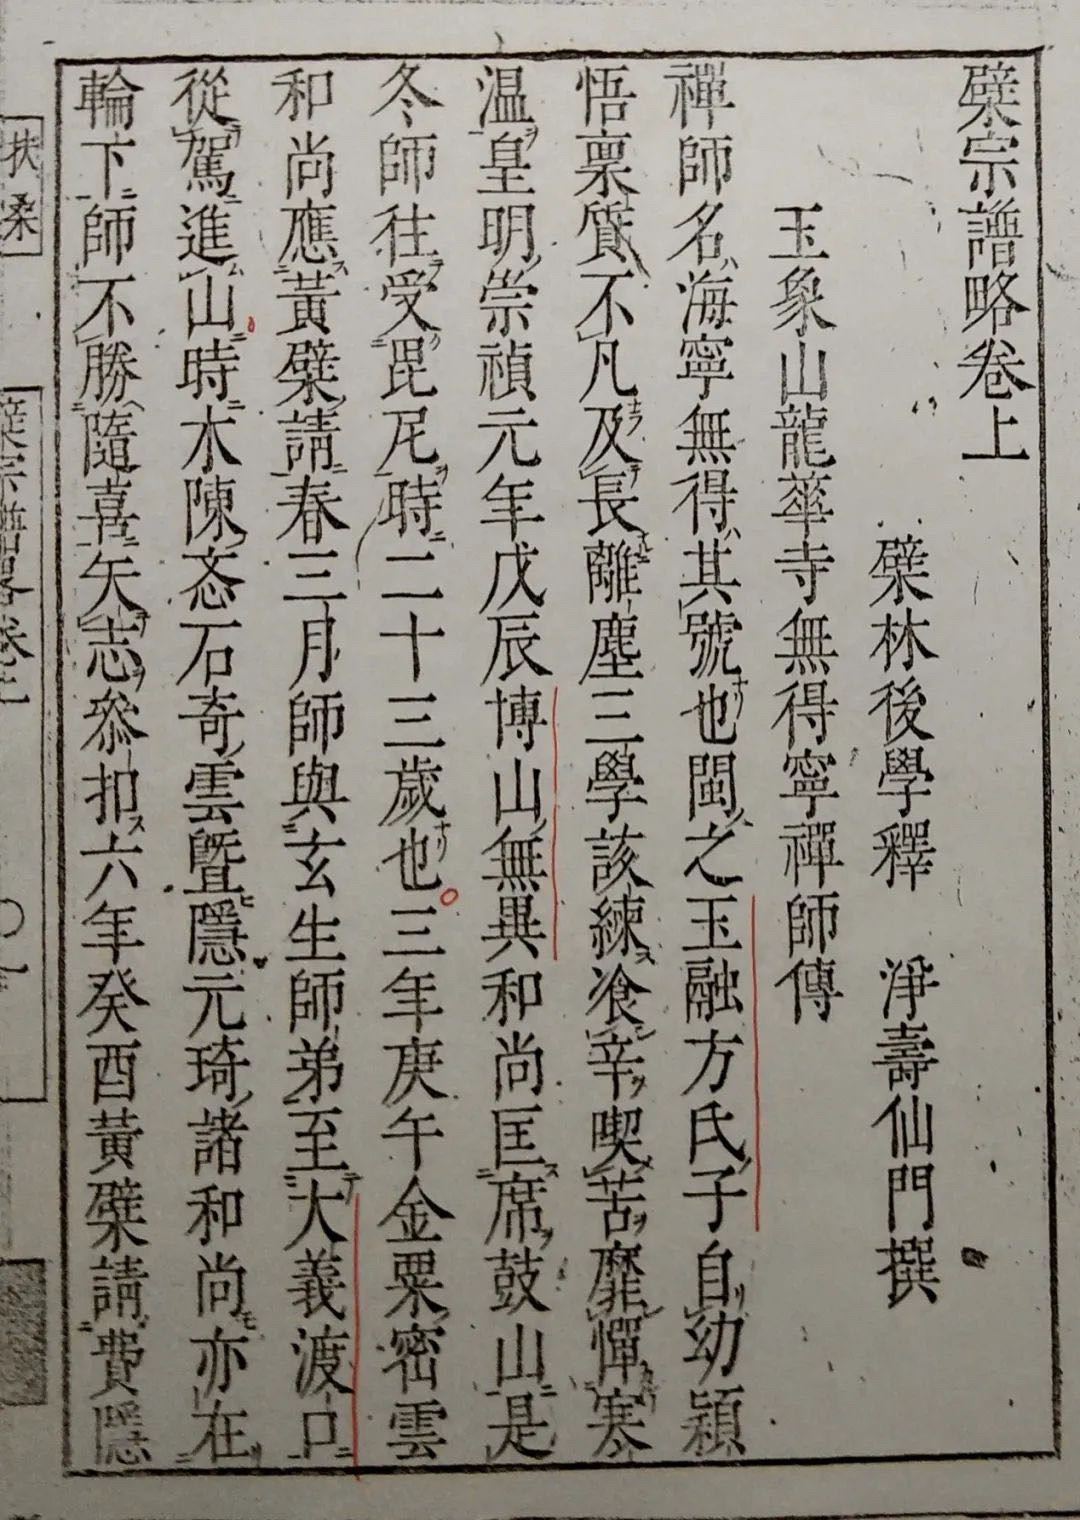 檗宗譜略卷上
檗林後學釋　淨壽仙門撰
玉象山龍華寺無得寧禪師傳
禪師名海寧無得其號也閩之玉融方氏子自幼穎
悟稟質不凡及長離塵三學該練飡辛喫苦靡憚寒
温皇明崇禎元年戊辰博山無異和尚匡席鼓山是
冬師往受毘尼時二十三歲也三年庚午金粟密雲
和尚應黃檗請春三月師與玄生師弟至大義渡口
從駕進山時木陳忞石奇雲曁隱元琦諸和尚亦在
輪下師不勝隨喜矢志叅扣六年癸酉黃檗請費隱
扶桑
檗宗譜畧卷上